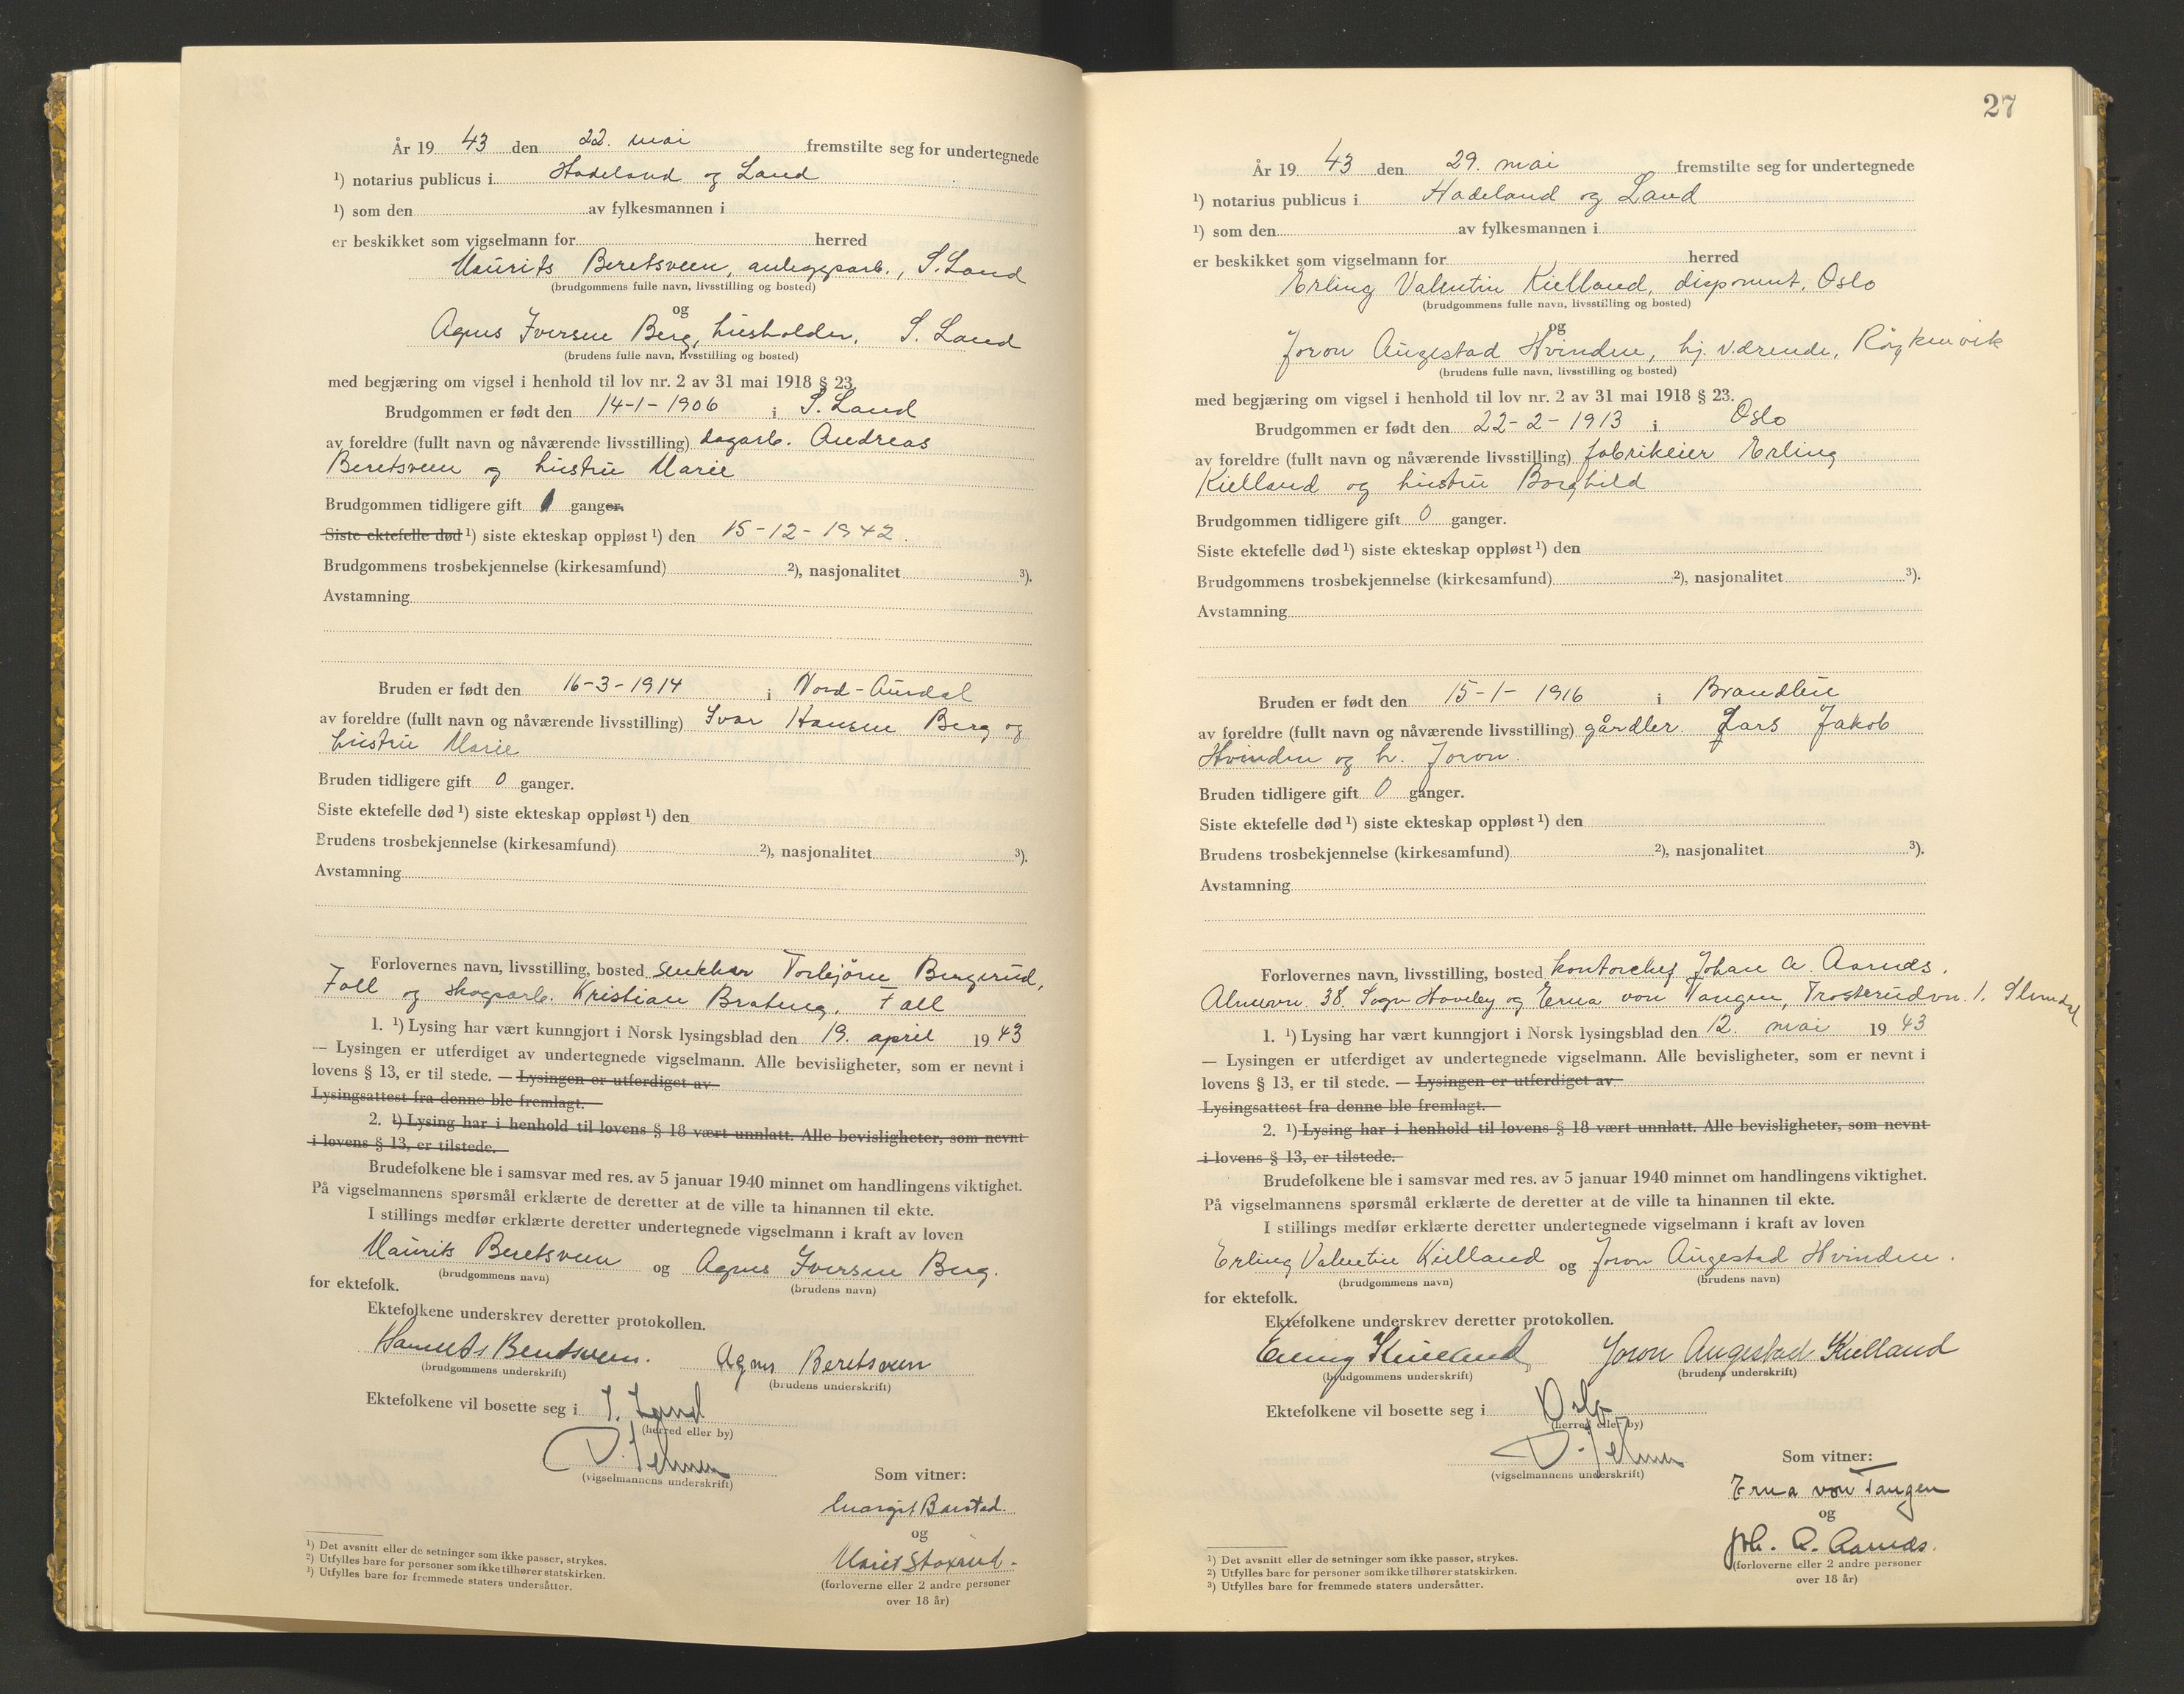 År 19 43 den 22. mai fremstilte seg for undertegnede
¹) notarius publicus i Hadeland og Land
¹) som den av fylkesmannen i
er beskikket som vigselmann for herred
Maurits Beretsveen, anleggsarb., S. Land
(brudgommens fulle navn, livsstilling og bosted)
og
Agnes Iversen Berg, husholder, S. Land
(brudens fulle navn, livsstilling og bosted)
med begjæring om vigsel i henhold til lov nr. 2 av 31 mai 1918 § 23.
Brudgommen er født den 14-1-1906 i S. Land
av foreldre (fullt navn og nåværende livsstilling) dagarb. Andreas
Beretsveen og hustru Marie
Brudgommen tidligere gift 1 ganger.
Siste ektefelle død ¹) siste ekteskap oppløst ¹) den 15-12-1942.
Brudgommens trosbekjennelse (kirkesamfund) ²), nasjonalitet ³).
Avstamning
Bruden er født den 16-3-1914 i Nord-Aurdal
av foreldre (fullt navn og nåværende livsstilling) Ivar Hansen Berg og
hustru Marie
Bruden tidligere gift 0 ganger.
Siste ektefelle død ¹) siste ekteskap oppløst ¹) den
Brudens trosbekjennelse (kirkesamfund) ²), nasjonalitet ³).
Avstamning
Forlovernes navn, livsstilling, bosted Torbjørn Bergerud,
Fall og skogsarb. Kristian Brateng, Fall
1. ¹) Lysing har vært kunngjort i Norsk lysingsblad den 19. april 1943
— Lysingen er utferdiget av undertegnede vigselmann. Alle bevisligheter, som er nevnt i
lovens § 13, er til stede. — Lysingen er utferdiget av
Lysingsattest fra denne ble fremlagt.
2. ¹) Lysing har i henhold til lovens § 18 vært unnlatt. Alle bevisligheter, som nevnt
i lovens § 13, er tilstede.
Brudefolkene ble i samsvar med res. av 5 januar 1940 minnet om handlingens viktighet.
På vigselmannens spørsmål erklærte de deretter at de ville ta hinannen til ekte.
I stillings medfør erklærte deretter undertegnede vigselmann i kraft av loven
Maurits Beretsveen og Agnes Iversen Berg.
(brudgommens navn) (brudens navn)
for ektefolk.
Ektefolkene underskrev deretter protokollen.
Beretsveen. Agnes Beretsveen
(brudgommens underskrift) (brudens underskrift)
Ektefolkene vil bosette seg i S. Land
(herred eller by)
(vigselmannens underskrift)
Som vitner:
Margit Barstad.
og
Marit Staxrud.
(forloverne eller 2 andre personer
over 18 år)
¹) Det avsnitt eller de setninger som ikke passer, strykes.
²) Utfylles bare for personer som ikke tilhører statskirken.
³) Utfylles bare for fremmede staters undersåtter.
27
År 19 43 den 29. mai fremstilte seg for undertegnede
¹) notarius publicus i Hadeland og Land
¹) som den av fylkesmannen i
er beskikket som vigselmann for herred
Erling Valentin Kielland, disponent, Oslo
(brudgommens fulle navn, livsstilling og bosted)
og
Joron Augestad Hvinden, hj. værende, Røykenvik
(brudens fulle navn, livsstilling og bosted)
med begjæring om vigsel i henhold til lov nr. 2 av 31 mai 1918 § 23.
Brudgommen er født den 22-2-1913 i Oslo
av foreldre (fullt navn og nåværende livsstilling) fabrikeier Erling
Kielland og hustru Borghild
Brudgommen tidligere gift 0 ganger.
Siste ektefelle død ¹) siste ekteskap oppløst ¹) den
Brudgommens trosbekjennelse (kirkesamfund) ²), nasjonalitet ³).
Avstamning
Bruden er født den 15-1-1916 i Brandbu
av foreldre (fullt navn og nåværende livsstilling) gårdbr. Lars Jakob
Hvinden og h. Joron.
Bruden tidligere gift 0 ganger.
Siste ektefelle død ¹) siste ekteskap oppløst ¹) den
Brudens trosbekjennelse (kirkesamfund) ²), nasjonalitet ³).
Avstamning
Forlovernes navn, livsstilling, bosted kontorchef Johan A. Aarnes,
38. Sogn Haveby og Erna von Tangen, Trosterudvn. 1. Slemdal
1. ¹) Lysing har vært kunngjort i Norsk lysingsblad den 12. mai 1943
— Lysingen er utferdiget av undertegnede vigselmann. Alle bevisligheter, som er nevnt i
lovens § 13, er til stede. — Lysingen er utferdiget av
Lysingsattest fra denne ble fremlagt.
2. ¹) Lysing har i henhold til lovens § 18 vært unnlatt. Alle bevisligheter, som nevnt
i lovens § 13, er tilstede.
Brudefolkene ble i samsvar med res. av 5 januar 1940 minnet om handlingens viktighet.
På vigselmannens spørsmål erklærte de deretter at de ville ta hinannen til ekte.
I stillings medfør erklærte deretter undertegnede vigselmann i kraft av loven
Erling Valentin Kielland og Joron Augestad Hvinden.
(brudgommens navn) (brudens navn)
for ektefolk.
Ektefolkene underskrev deretter protokollen.
Erling Kielland Joron Augestad Kielland
(brudgommens underskrift) (brudens underskrift)
Ektefolkene vil bosette seg i Oslo
(herred eller by)
(vigselmannens underskrift)
Som vitner:
Erna von Tangen
og
Joh. A. Aarnes.
(forloverne eller 2 andre personer
over 18 år)
¹) Det avsnitt eller de setninger som ikke passer, strykes.
²) Utfylles bare for personer som ikke tilhører statskirken.
³) Utfylles bare for fremmede staters undersåtter.